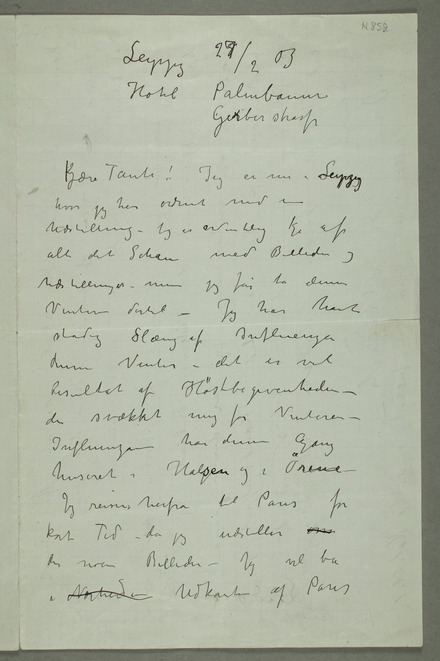 N 858
Leipzig 27/2 03
Hotel Palmbaum
Gerber strasse
Kjære Tante! Jeg er nu i Leipzig
hvor jeg har ordnet med en
Udstilling – Jeg er ordentlig kje af
alt det Schau med Billeder og
Udstillinger – men jeg får ta denne
Vinteren dertil – Jeg har havt
stadig Slæng af Influenza
denne Vinter – det er vel
Resultat af Höstbegivenheden –
der svækket mig for Vinteren –
Influenzaen har denne Gang
huseret i Halsen og i Örene
Jeg reiser herfra til Paris for
kort Tid – da jeg udstiller
der noen Billeder – Jeg vil bo
i Nærheden Udkanten af Paris